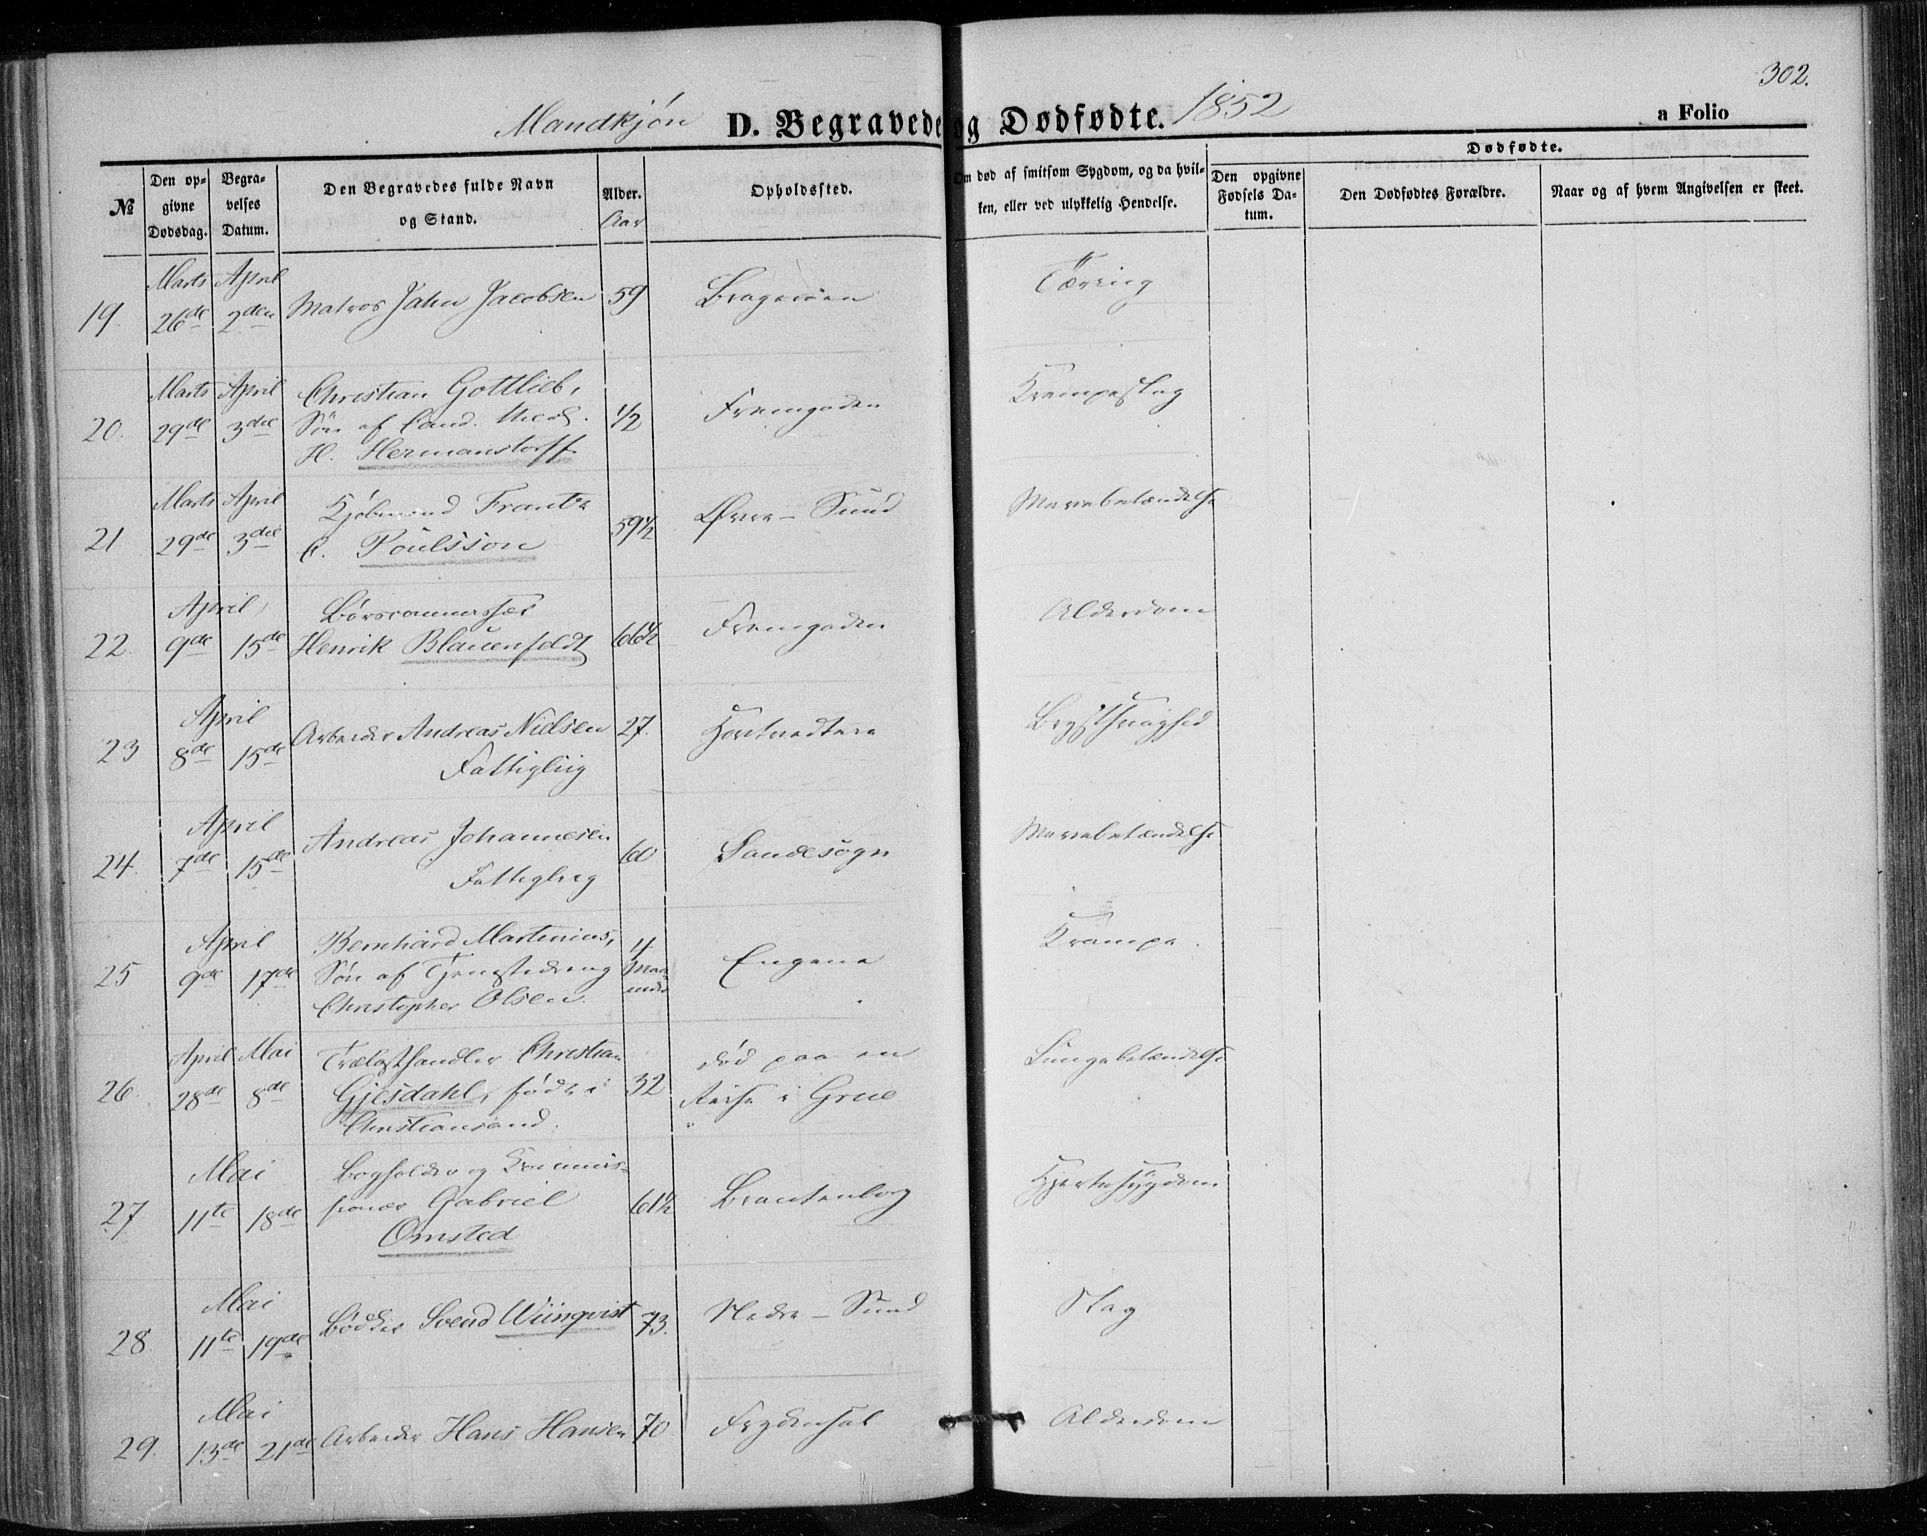 302.
Mandkjøn D. Begravede og Dødfødte. 1852 a Folio
No
Den op-
givne
Dødsdag.
Begra-
velses
Datum.
Den Begravedes fulde Navn
og Stand.
Alder.
Aar
Opholdssted.
Om død af smitsom Sygdom, og da hvil-
ken, eller ved ulykkelig Hendelse.
Dødfødte.
Den opgivne
Fødsels Da-
tum.
Den Dødfødtes Forældre.
Naar og af hvem Angivelsen er skeet.
Marts April
19. 26de 2den Matros Jahn Jacobsen 59 Bragerøen Tæring
Marts April Christian Gottlieb,
20. 29de 3die Søn af Cand. Med. 1/2 Fremgaden Krampeslag
H. Hermanstorff
Marts April Kjøbmand Frantz
21 29de 3die C. Poulsson 59 1/2 Øvre-Sund Mavebetændelse
April Børscommissær
22. 9de 15de Henrik Blauenfeldt 66 1/2 Fremgaden Alderdom
April
23 8de 15de Arbeider Andreas Nielsen 27. Brystsvaghed
Fattiglig
April
24. 7de 15de Andreas Johannesen 60 Sandesogn Mavebetændelse
Fattiglig
April Bernhard Martinius, 4
25 9de 17de Søn af Tjenestedreng Maa- Engene Krampe.
Christopher Olsen. neder
April Mai Trælasthandler Christian død paa en Lungebetændelse
26. 28de 8de Gjesdahl, født i 32 Reise i Grue
Christiansand.
Mai Bogholder og Kommis-
27. 11te 18de sionær Gabriel 61 1/2 Brantenborg Hjertesygdom
Omsted
Mai
28. 11te 19de Bødker Svend Wiinqvist 73. Nedre-Sund Slag
Mai
29. 13de 21de Arbeider Hans Hansen 70 Frydensal Alderdom